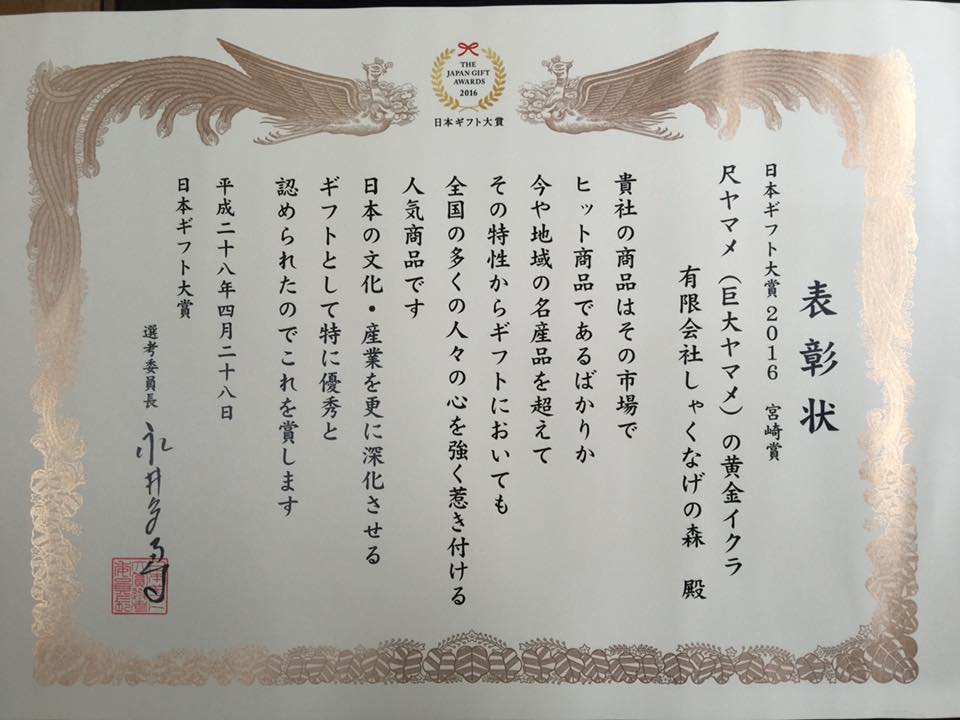 THE
JAPAN GIFT
AWARDS
2016
日本ギフト大賞
表彰状
日本ギフト大賞2016 宮崎賞
尺ヤマメ(巨大ヤマメ)の黄金イクラ
有限会社しゃくなげの森 殿
貴社の商品はその市場で
ヒット商品であるばかりか
今や地域の名産品を超えて
その特性からギフトにおいても
全国の多くの人々の心を強く惹き付ける
人気商品です
日本の文化・産業を更に深化させる
ギフトとして特に優秀と
認められたのでこれを賞します
平成二十八年四月二十八日
日本ギフト大賞
選考委員長